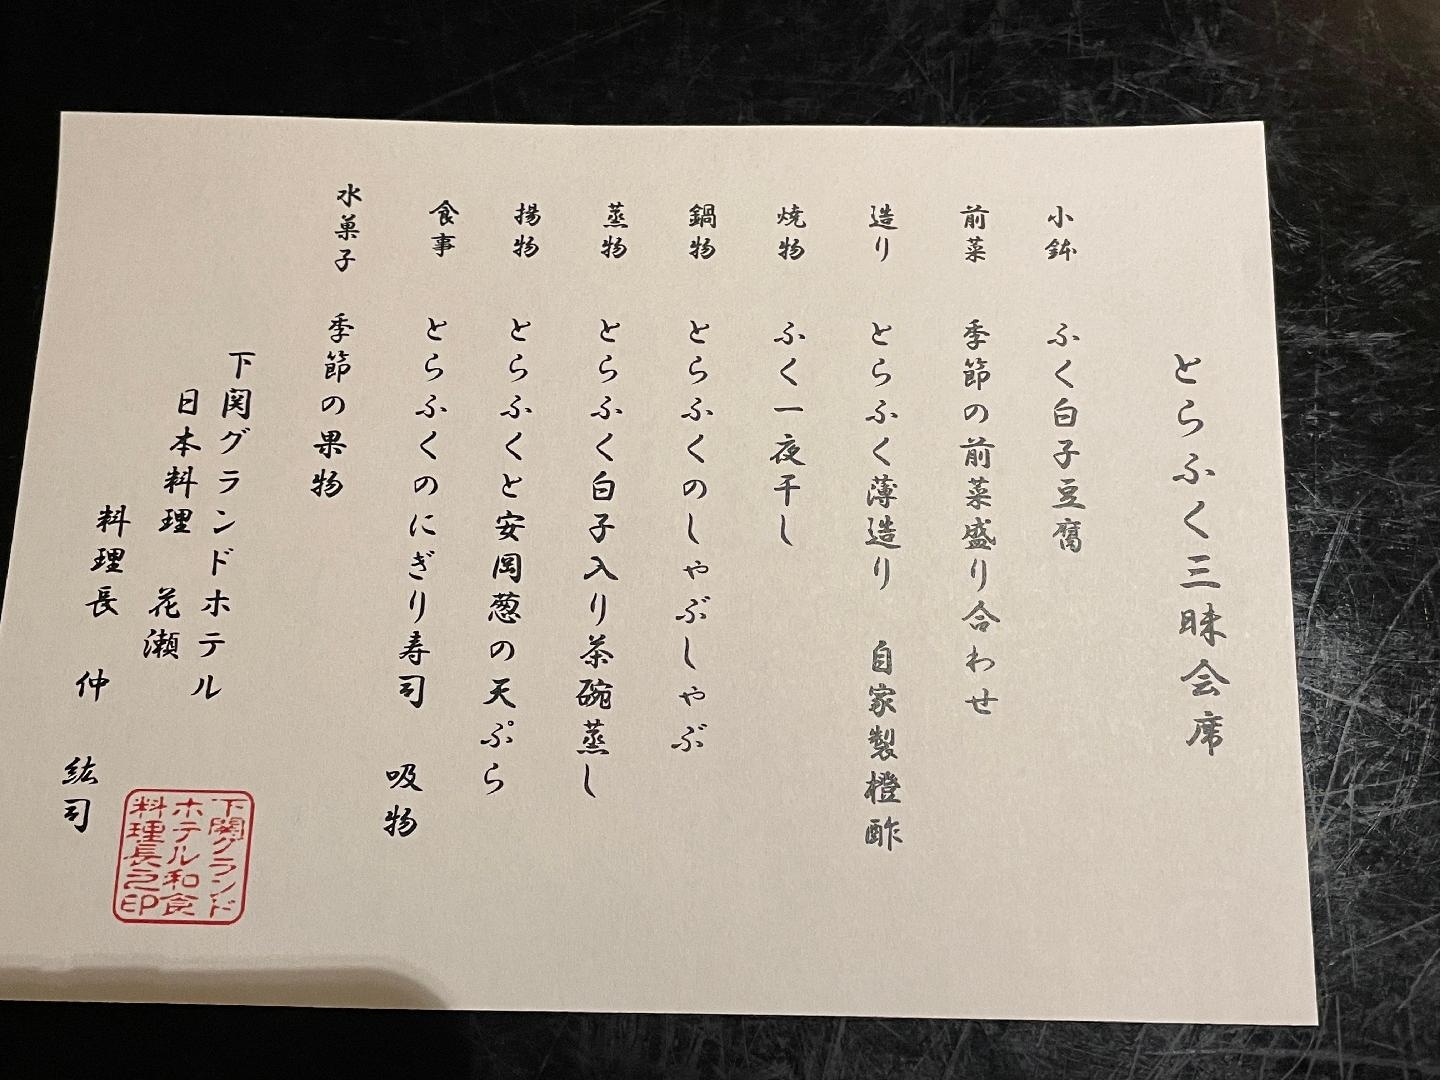 とらふく三昧会席
小鉢　ふく白子豆腐
前菜　季節の前菜盛り合わせ
造り　とらふく薄造り　自家製橙酢
焼物　ふく一夜干し
鍋物　とらふくのしゃぶしゃぶ
蒸物　とらふく白子入り茶碗蒸し
揚物　とらふくと安岡葱の天ぷら
食事　とらふくのにぎり寿司　吸物
水菓子　季節の果物
下関グランドホテル
日本料理　花瀬
料理長　仲　紘司
下関グランド
ホテル和食
料理長之印